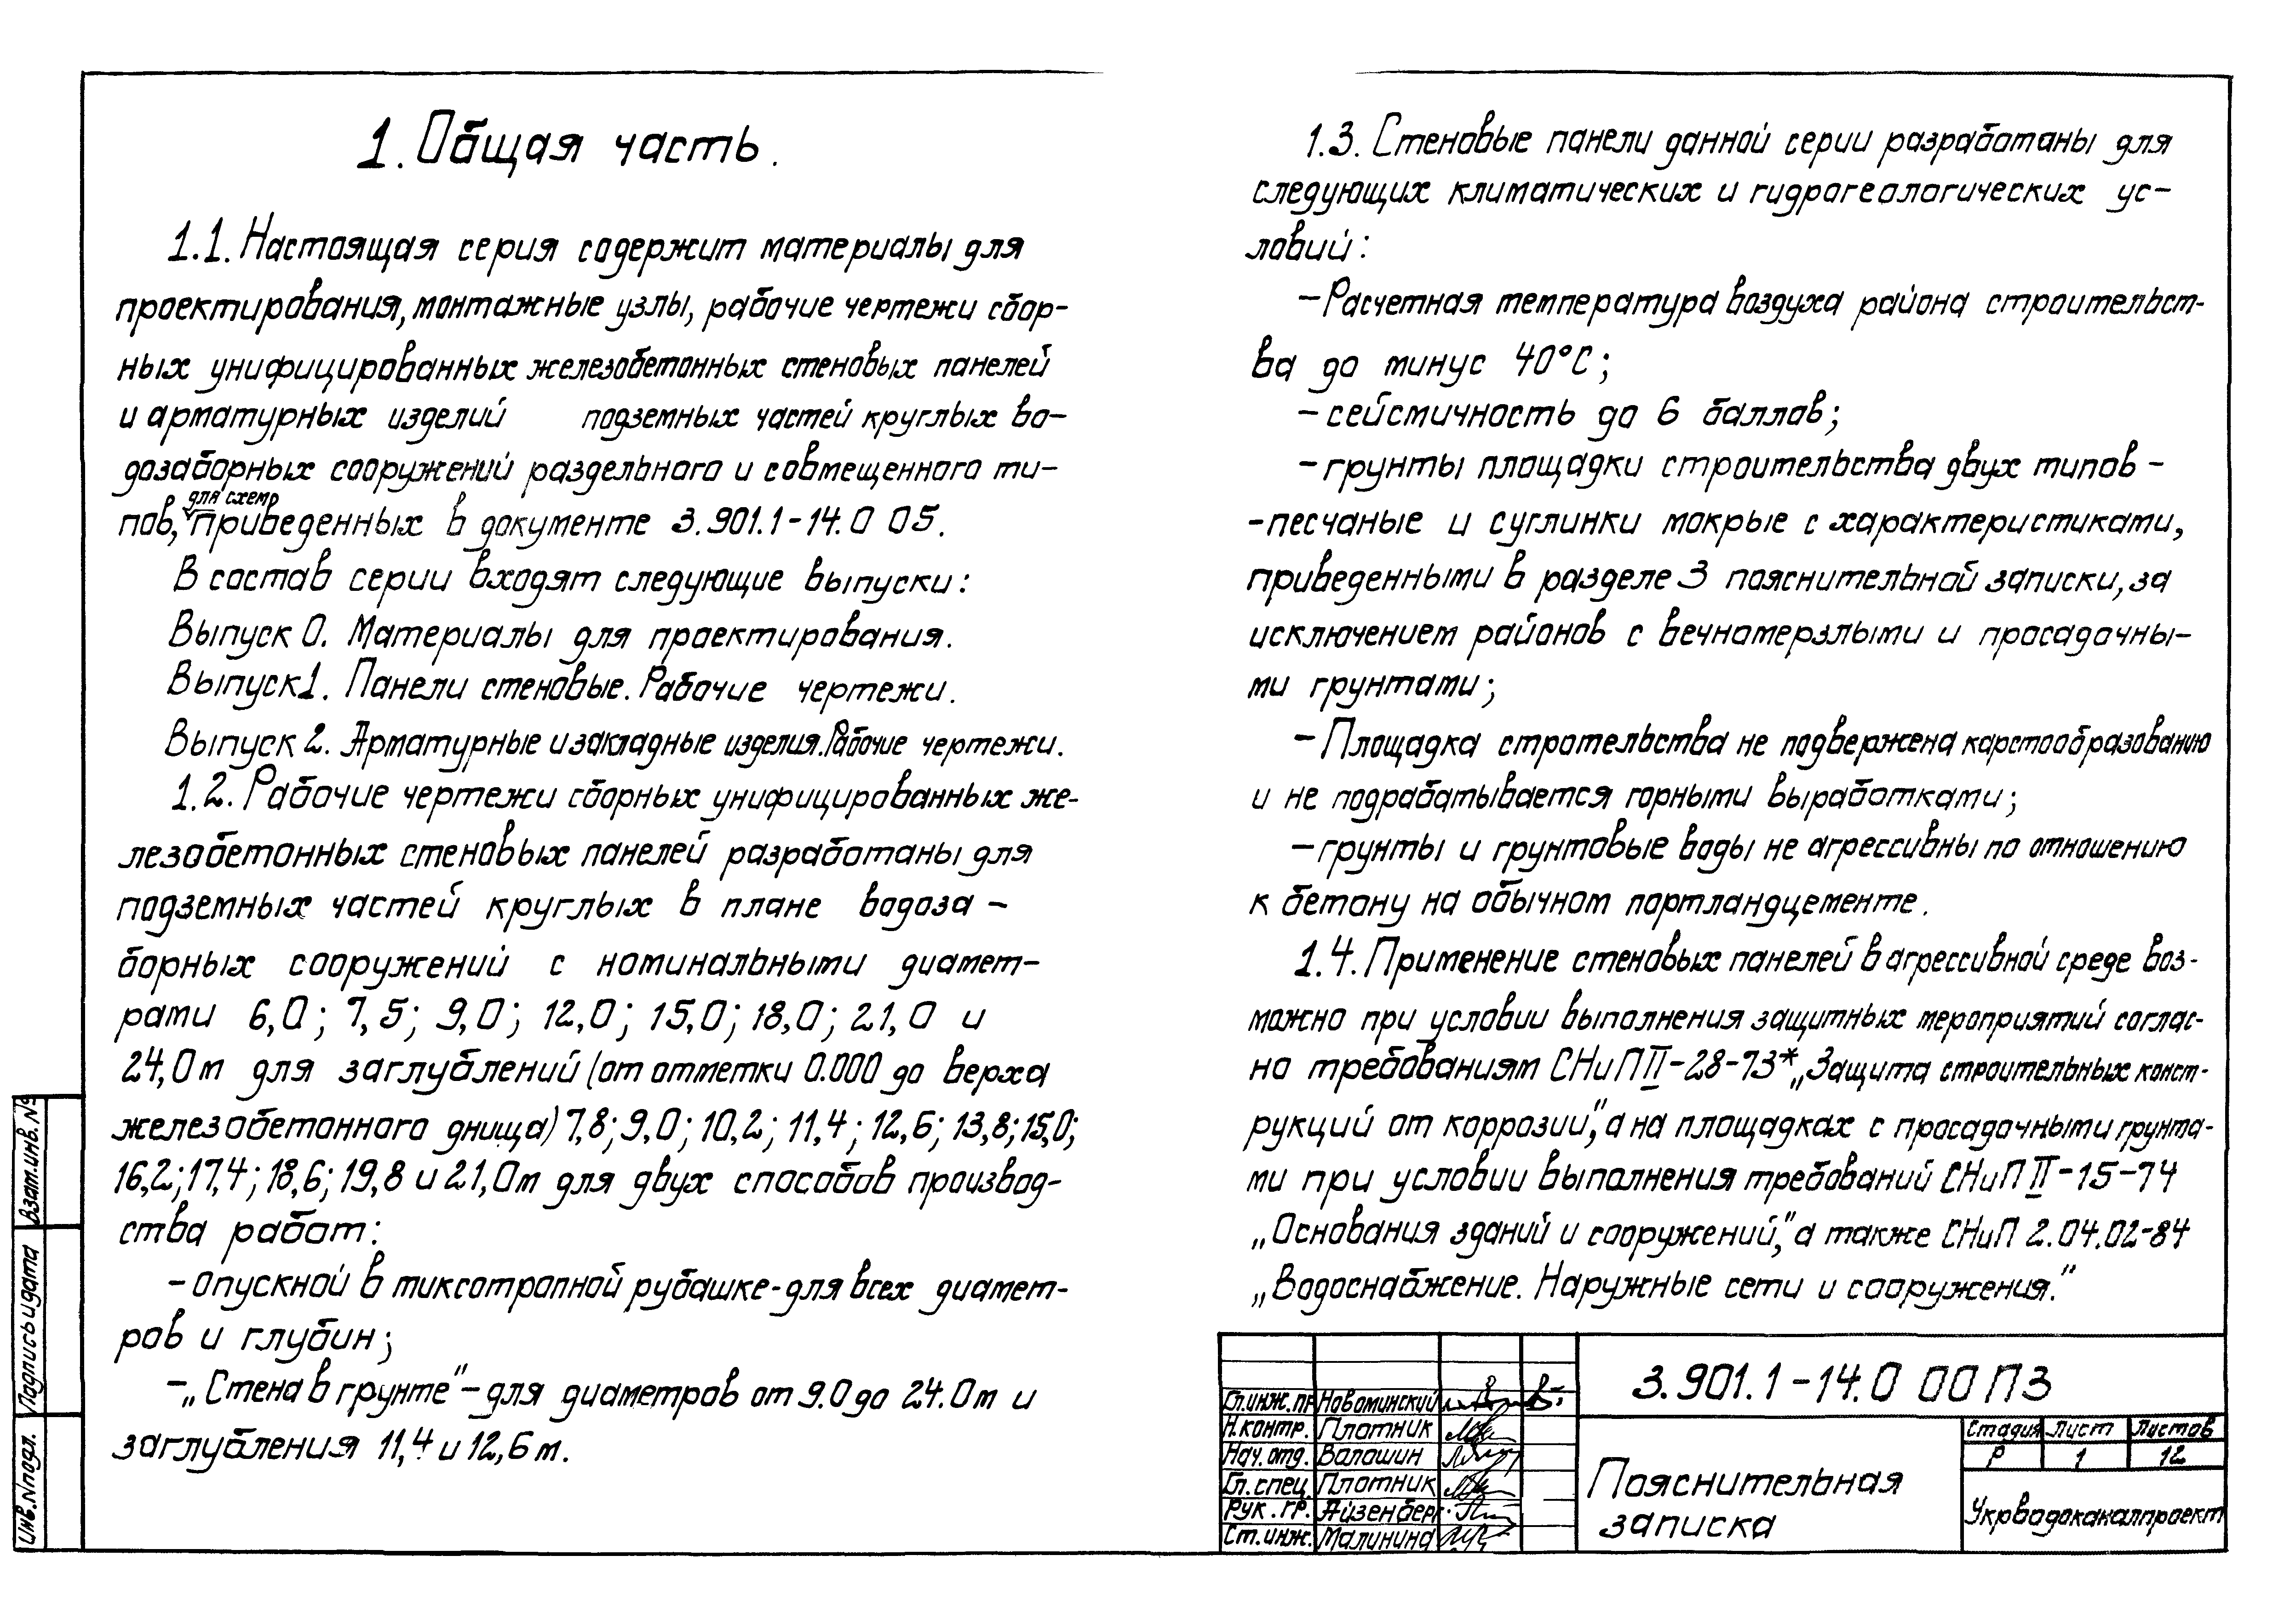 1. Общая часть.
1.1. Настоящая серия содержит материалы для
проектирования, монтажные узлы, рабочие чертежи сбор-
ных унифицированных железобетонных стеновых панелей
и арматурных изделий подземных частей круглых во-
дозаборных сооружений раздельного и совмещенного ти-
для схем
пов, приведенных в документе 3.901.1-14.0 05.
В состав серии входят следующие выпуски:
Выпуск 0. Материалы для проектирования.
Выпуск 1. Панели стеновые. Рабочие чертежи.
Выпуск 2. Арматурные и закладные изделия. Рабочие чертежи.
1.2. Рабочие чертежи сборных унифицированных же-
лезобетонных стеновых панелей разработаны для
подземных частей круглых в плане водоза-
борных сооружений с номинальными диамет-
рами 6,0; 7,5; 9,0; 12,0; 15,0; 18,0; 21,0 и
24,0 м для заглублений (от отметки 0.000 до верха
железобетонного днища) 7,8; 9,0; 10,2; 11,4; 12,6; 13,8; 15,0;
16,2; 17,4; 18,6; 19,8 и 21,0м для двух способов производ-
ства работ:
- опускной в тиксотропной рубашке - для всех диамет-
ров и глубин;
- „Стена в грунте" - для диаметров от 9.0 до 24.0 м и
заглубления 11,4 и 12,6 м.
1.3. Стеновые панели данной серии разработаны для
следующих климатических и гидрогеологических ус-
ловий:
- Расчетная температура воздуха района строительст-
ва до минус 40°С;
- сейсмичность до 6 баллов;
- грунты площадки строительства двух типов -
- песчаные и суглинки мокрые с характеристиками,
приведенными в разделе 3 пояснительной записки, за
исключением районов с вечномерзлыми и просадочны-
ми грунтами;
- Площадка стротельства не подвержена карстообразованию
и не подрабатывается горными выработками;
- грунты и грунтовые воды не агрессивны по отношению
к бетону на обычном портландцементе.
1.4. Применение стеновых панелей в агрессивной среде воз-
можно при условии выполнения защитных мероприятий соглас-
но требованиям СНиП II-28-73* „Защита строительных конст-
рукций от коррозии", а на площадках с просадочными грунта-
ми при условии выполнения требований СНиП II-15-74
„Основания зданий и сооружений", а также СНиП 2.04.02-84
„Водоснабжение. Наружные сети и сооружения."
Взам.инв.№
Подпись и дата
Инв.Nподл.
Гл.инж.пр Новоминский
Н.контр. Плотник
Нач.отд. Валошин
Гл.спец. Плотник
Рук.гр. Айзенберг
Ст.инж. Малинина
3.901.1-14.0 00 ПЗ
Пояснительная
записка
Стадия Лист Листов
Р 1 12
Укрводоканалпроект